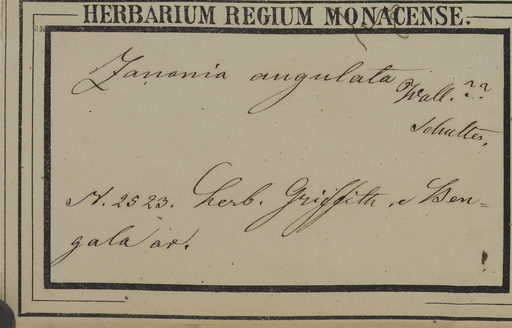 HERBARIUM REGIUM MONACENSE.
Zanonia angulata Wall. ??
Schultes.
N. 2523. herb. Griffith. e Ben=
gala or.
!